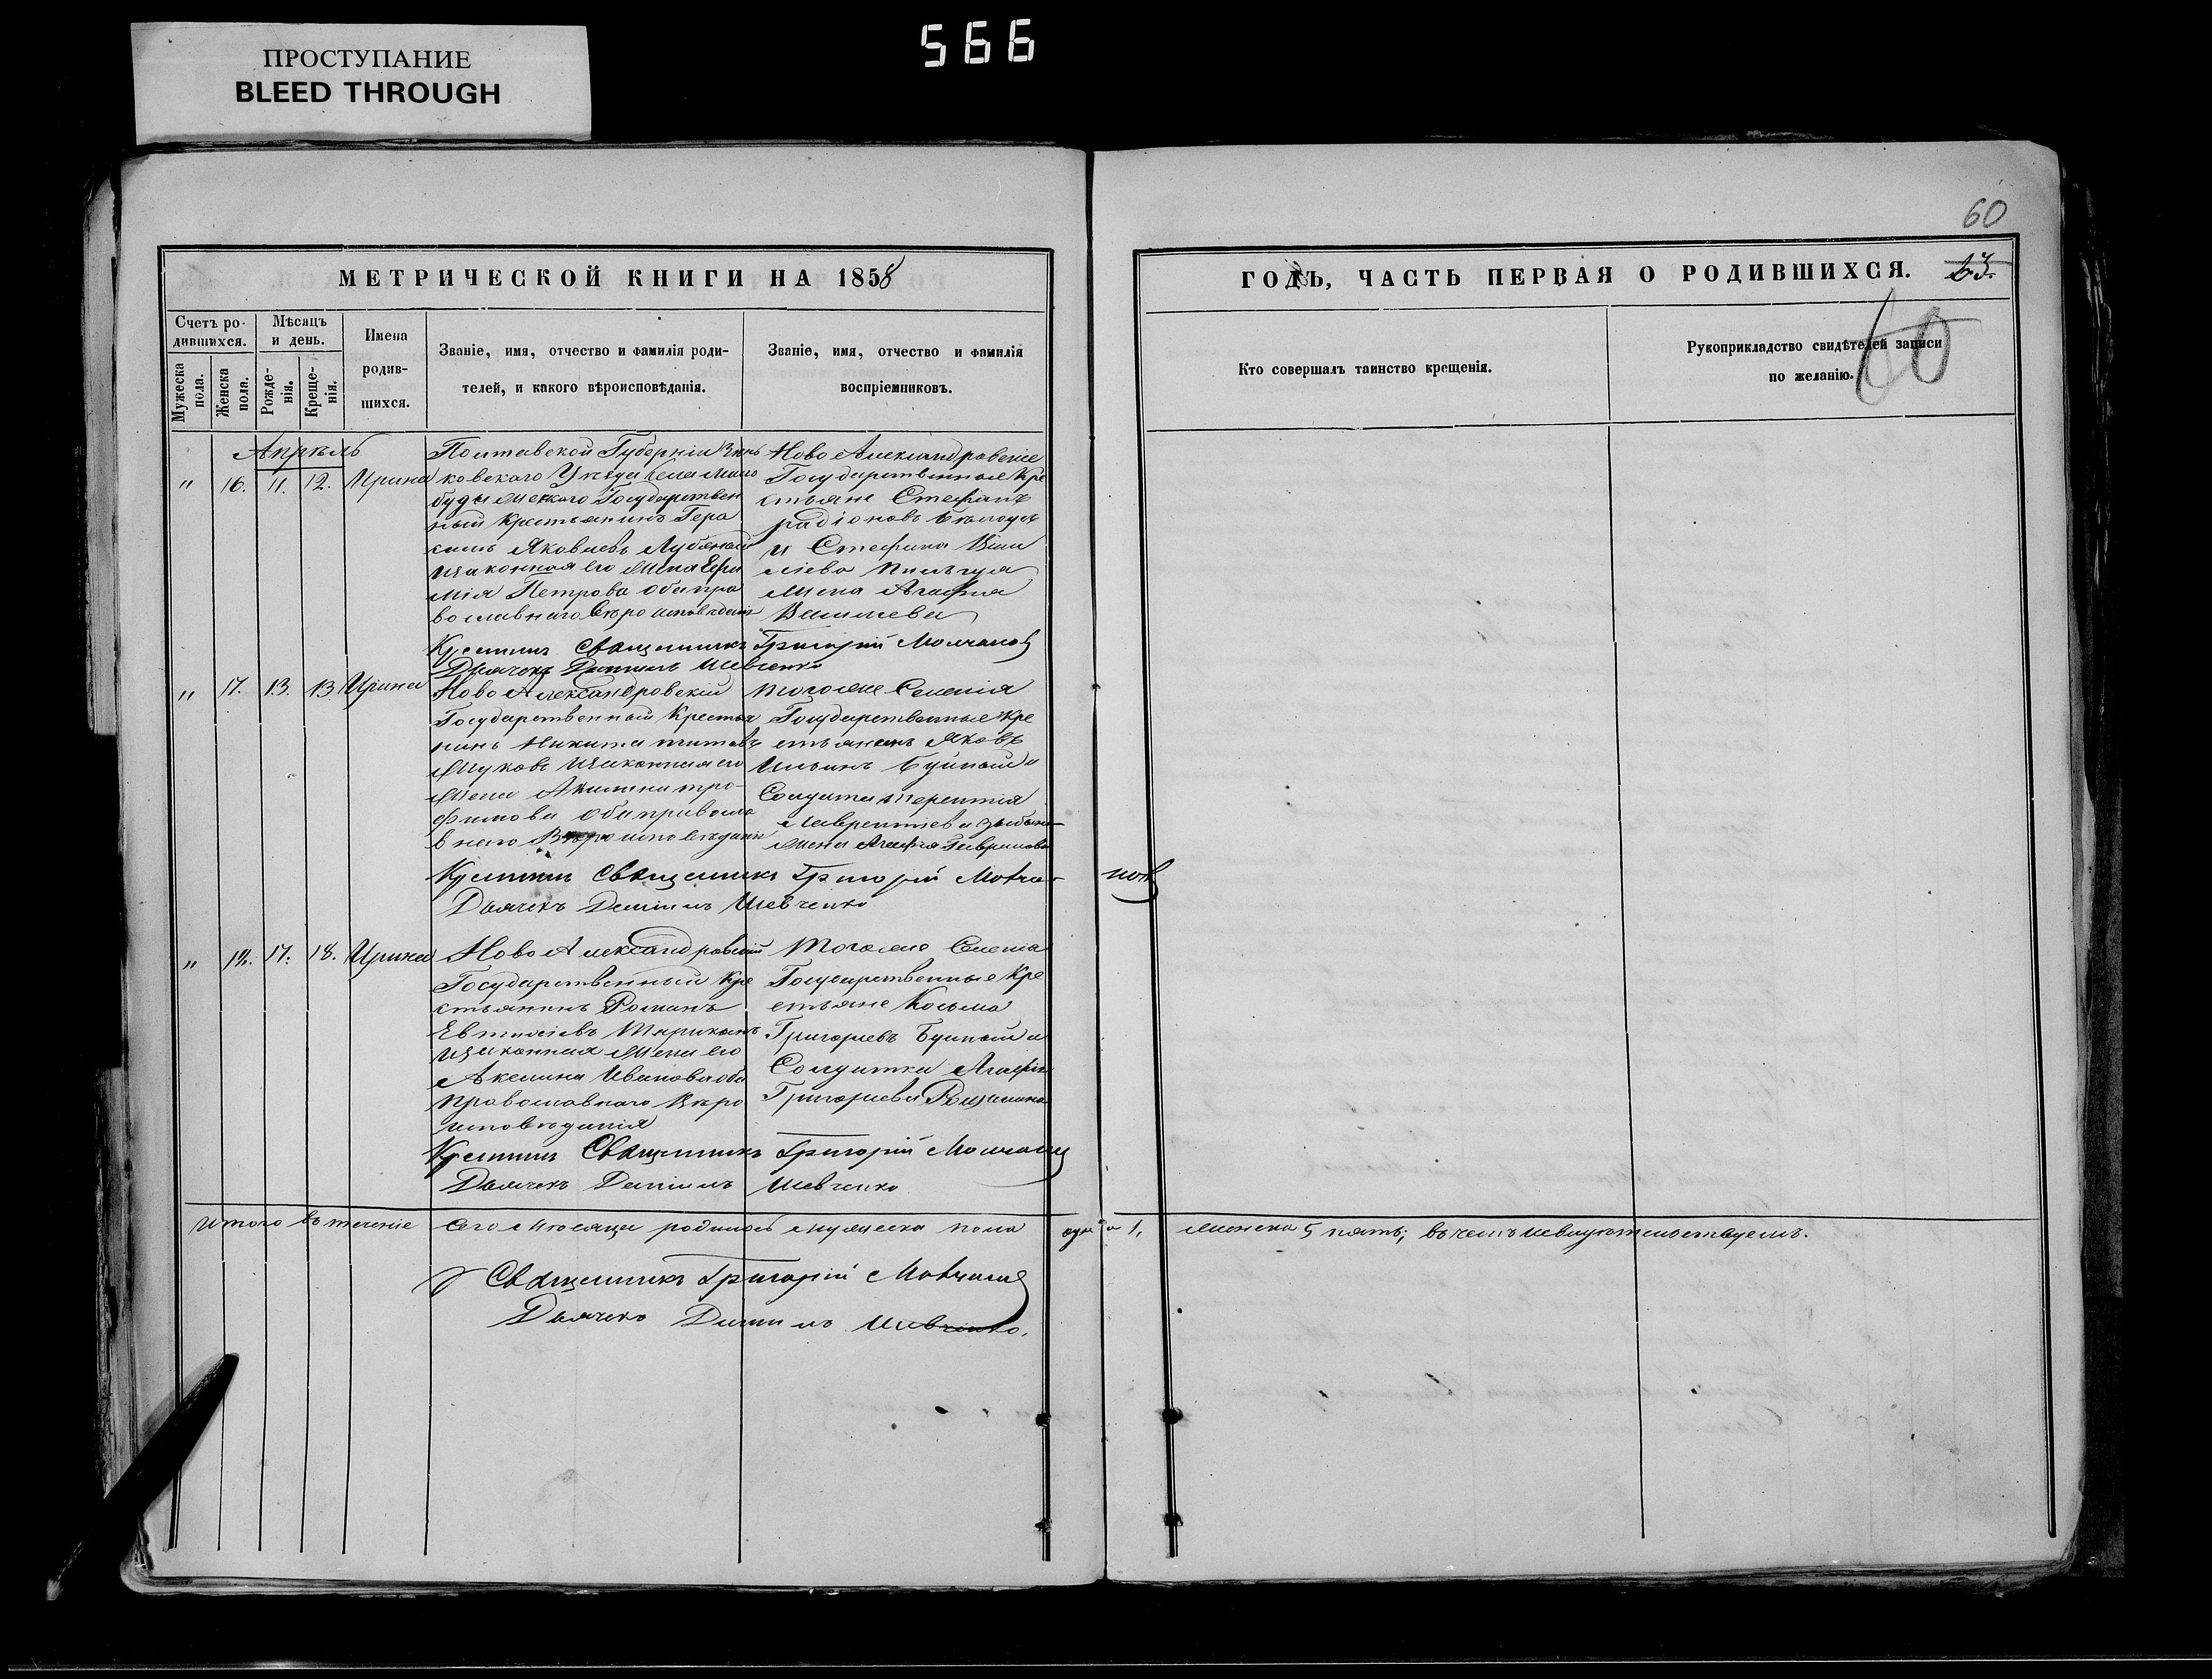 ПРОСТУПАНИЕ
BLEED THROUGH
566
60
МЕТРИЧЕСКОЙ КНИГИ НА 1858
ГОДЪ, ЧАСТЬ ПЕРВАЯ О РОДИВШИХСЯ.
60
Счетъ ро-
дившихся.
Мужеска пола.
Женска пола.
Мѣсяцъ
и день.
Рожде-
нія.
Креще-
нія.
Имена
родив-
шихся.
Званіе, имя, отчество и фамилія роди-
телей, и какого вѣроисповѣданія.
Званіе, имя, отчество и фамилія
воспріемниковъ.
Кто совершалъ таинство крещенія.
Рукоприкладство свидѣтелей записи
по желанію.
Апрѣль
" 16. 11. 12. Ирина
Полтавской Губерніи Зѣнь
ковскаго Уѣзда Села
Государствен
ный крестьянинъ Гера
симъ Яковлевъ
и законная его жена Ефи
мія Петрова оба пра
вославнаго вѣроисповѣданія
Ново Александровскіе
Государственные Кре
стьяне Стефанъ
радіоновъ
и Стефана Васи
ліева
жена Агафія
Василіева
Крестилъ Священникъ Григорій Молчановъ
Дьячекъ Даніилъ Шевченко
" 17. 13. 13. Ирина
Ново Александровскій
Государственный Крестья
нинъ Никита титовъ
Жуковъ и законная его
жена Акилина тро-
фимова оба правосла
внаго Вѣроисповѣданія
того же Селенія
Государственные Кре
стьянинъ Яковъ
Ильинъ и
Солдата терентія
Лаврентіева
жена Агафія Гаврилова
Крестилъ Священникъ Григорій Молча-
новъ
Дьячекъ Даніилъ Шевченко
" 18. 17. 18. Ирина
Ново Александровскій
Государственный Кре
стьянинъ Романъ
и законная жена его
Акилина Иванова оба
православнаго Вѣро
исповѣданія
Того же Селенія
Государственные Кре
стьяне Косьма
Григорьевъ и
Солдатка Агафія
Григорьева
Крестилъ Священникъ Григорій Молчановъ
Дьячекъ Даніилъ Шевченко
Итого въ теченіе сего мѣсяца родилось мужеска пола одна 1, женска 5 пять; въ чемъ и свидѣтельствуемъ.
Священникъ Григорій Молчановъ
Дьячекъ Даніилъ Шевченко.